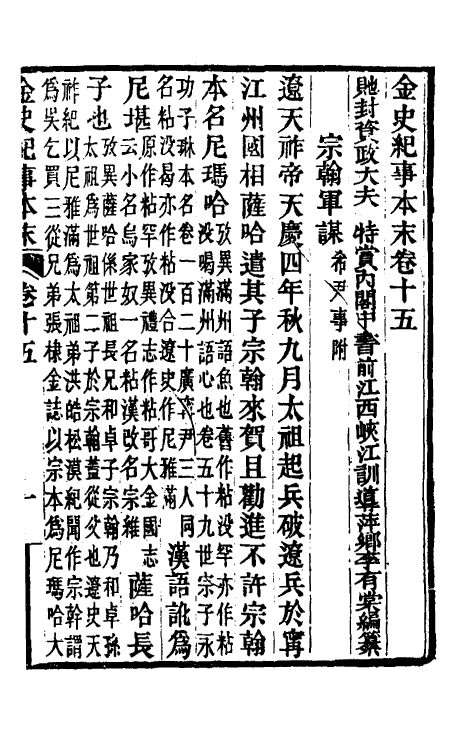 金史紀事本末卷十五
貤封資政大夫 特賞內閣中書前江西峽江訓導萍鄉李有棠編纂
宗翰軍謀 希尹事附
遼天祚帝天慶四年秋九月太祖起兵破遼兵於寧
江州國相薩哈遣其子宗翰來賀且勸進不許宗翰
本名尼瑪哈
攷異滿州語魚也舊作粘沒罕亦作粘
沒喝滿州語心也卷五十九世宗子永
功子琳本名卷一百二十廣 尹三人同
名粘沒曷亦作粘沒合遼史作尼雅滿
漢語訛為
尼堪
原作粘罕攷異禮志作粘哥大金國志
云小名烏家奴一名粘漢改名宗維
薩哈長
子也
攷異薩哈係世祖長兄和卓子宗翰乃和卓孫
太祖為世祖第二子於宗翰蓋從父也遼史天
祚紀以尼雅滿為太祖弟洪皓松漠紀聞作宗幹謂
為吳乞買三從兄弟張棣金誌以宗本為尼瑪哈大
金史紀事本末 卷十五 一